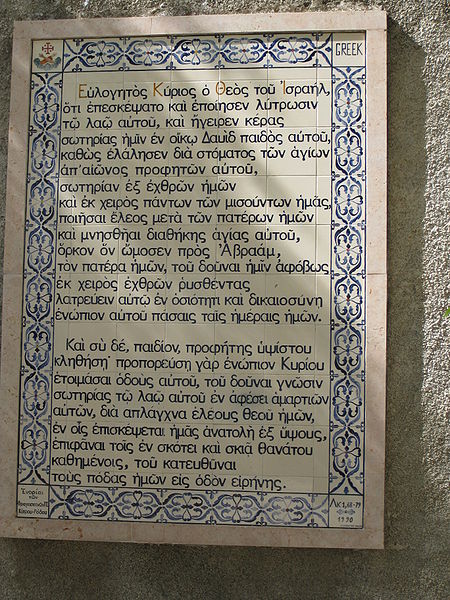 GREEK
Εὐλογητὸς Κύριος ὁ Θεὸς τοῦ Ἰσραήλ,
ὅτι ἐπεσκέψατο καὶ ἐποίησεν λύτρωσιν
τῷ λαῷ αὐτοῦ, καὶ ἤγειρεν κέρας
σωτηρίας ἡμῖν ἐν οἴκῳ Δαυὶδ παιδὸς αὐτοῦ,
καθὼς ἐλάλησεν διὰ στόματος τῶν ἁγίων
ἀπ'αἰῶνος προφητῶν αὐτοῦ,
σωτηρίαν ἐξ ἐχθρῶν ἡμῶν
καὶ ἐκ χειρὸς πάντων τῶν μισούντων ἡμᾶς,
ποιῆσαι ἔλεος μετὰ τῶν πατέρων ἡμῶν
καὶ μνησθῆναι διαθήκης ἁγίας αὐτοῦ,
ὅρκον ὃν ὤμοσεν πρὸς Ἀβραάμ,
τὸν πατέρα ἡμῶν, τοῦ δοῦναι ἡμῖν ἀφόβως
ἐκ χειρὸς ἐχθρῶν ῥυσθέντας
λατρεύειν αὐτῷ ἐν ὁσιότητι καὶ δικαιοσύνῃ
ἐνώπιον αὐτοῦ πάσαις ταῖς ἡμέραις ἡμῶν.
Καὶ σὺ δέ, παιδίον, προφήτης ὑψίστου
κληθήσῃ· προπορεύσῃ γὰρ ἐνώπιον Κυρίου
ἑτοιμάσαι ὁδοὺς αὐτοῦ, τοῦ δοῦναι γνῶσιν
σωτηρίας τῷ λαῷ αὐτοῦ ἐν ἀφέσει ἁμαρτιῶν
αὐτῶν, διὰ σπλάγχνα ἐλέους θεοῦ ἡμῶν,
ἐν οἷς ἐπισκέψεται ἡμᾶς ἀνατολὴ ἐξ ὕψους,
ἐπιφᾶναι τοῖς ἐν σκότει καὶ σκιᾷ θανάτου
καθημένοις, τοῦ κατευθῦναι
τοὺς πόδας ἡμῶν εἰς ὁδὸν εἰρήνης.
Ἐνορίαι
Λκ 1,68-79
1990